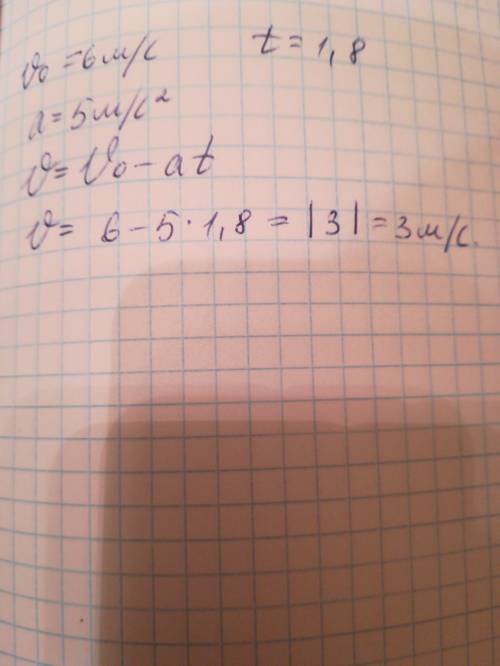 v₀ = 6 м/с t = 1,8
a = 5 м/с²
v = v₀ - at
v = 6 - 5 · 1,8 = |3| = 3 м/с.